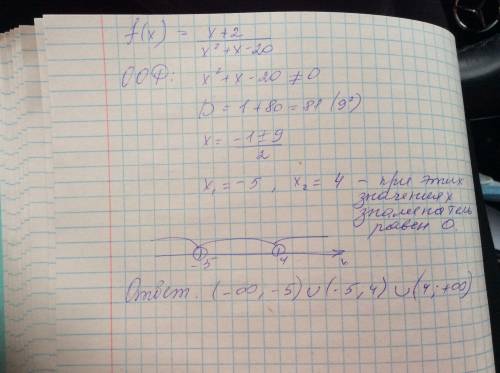 f(x) = x+2 / x²+x-20
ООФ: x²+x-20 ≠ 0
D = 1+80 = 81 (9²)
x = -1±9 / 2
x₁ = -5, x₂ = 4 - при этих
значениях
знаменатель
равен 0.
-5 4 x
Ответ: (-∞, -5)∪(-5, 4)∪(4; +∞)